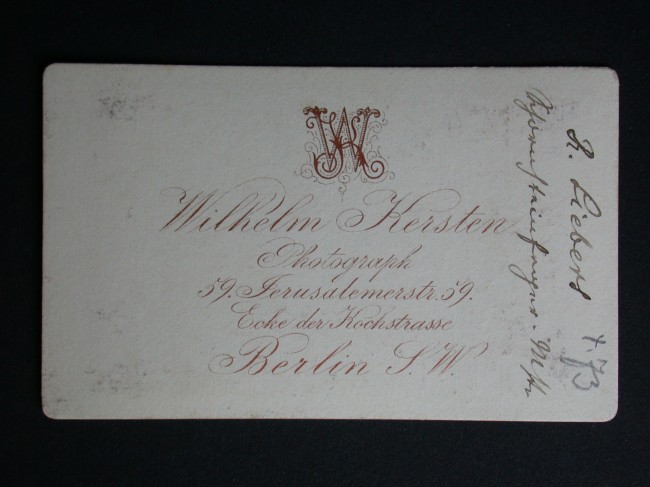 WK
Wilhelm Kersten
Photograph
59. Jerusalemerstr. 59.
Ecke der Kochstrasse
Berlin S.W.
R. Liebers
Schornsteinfeger-Mstr
†.73